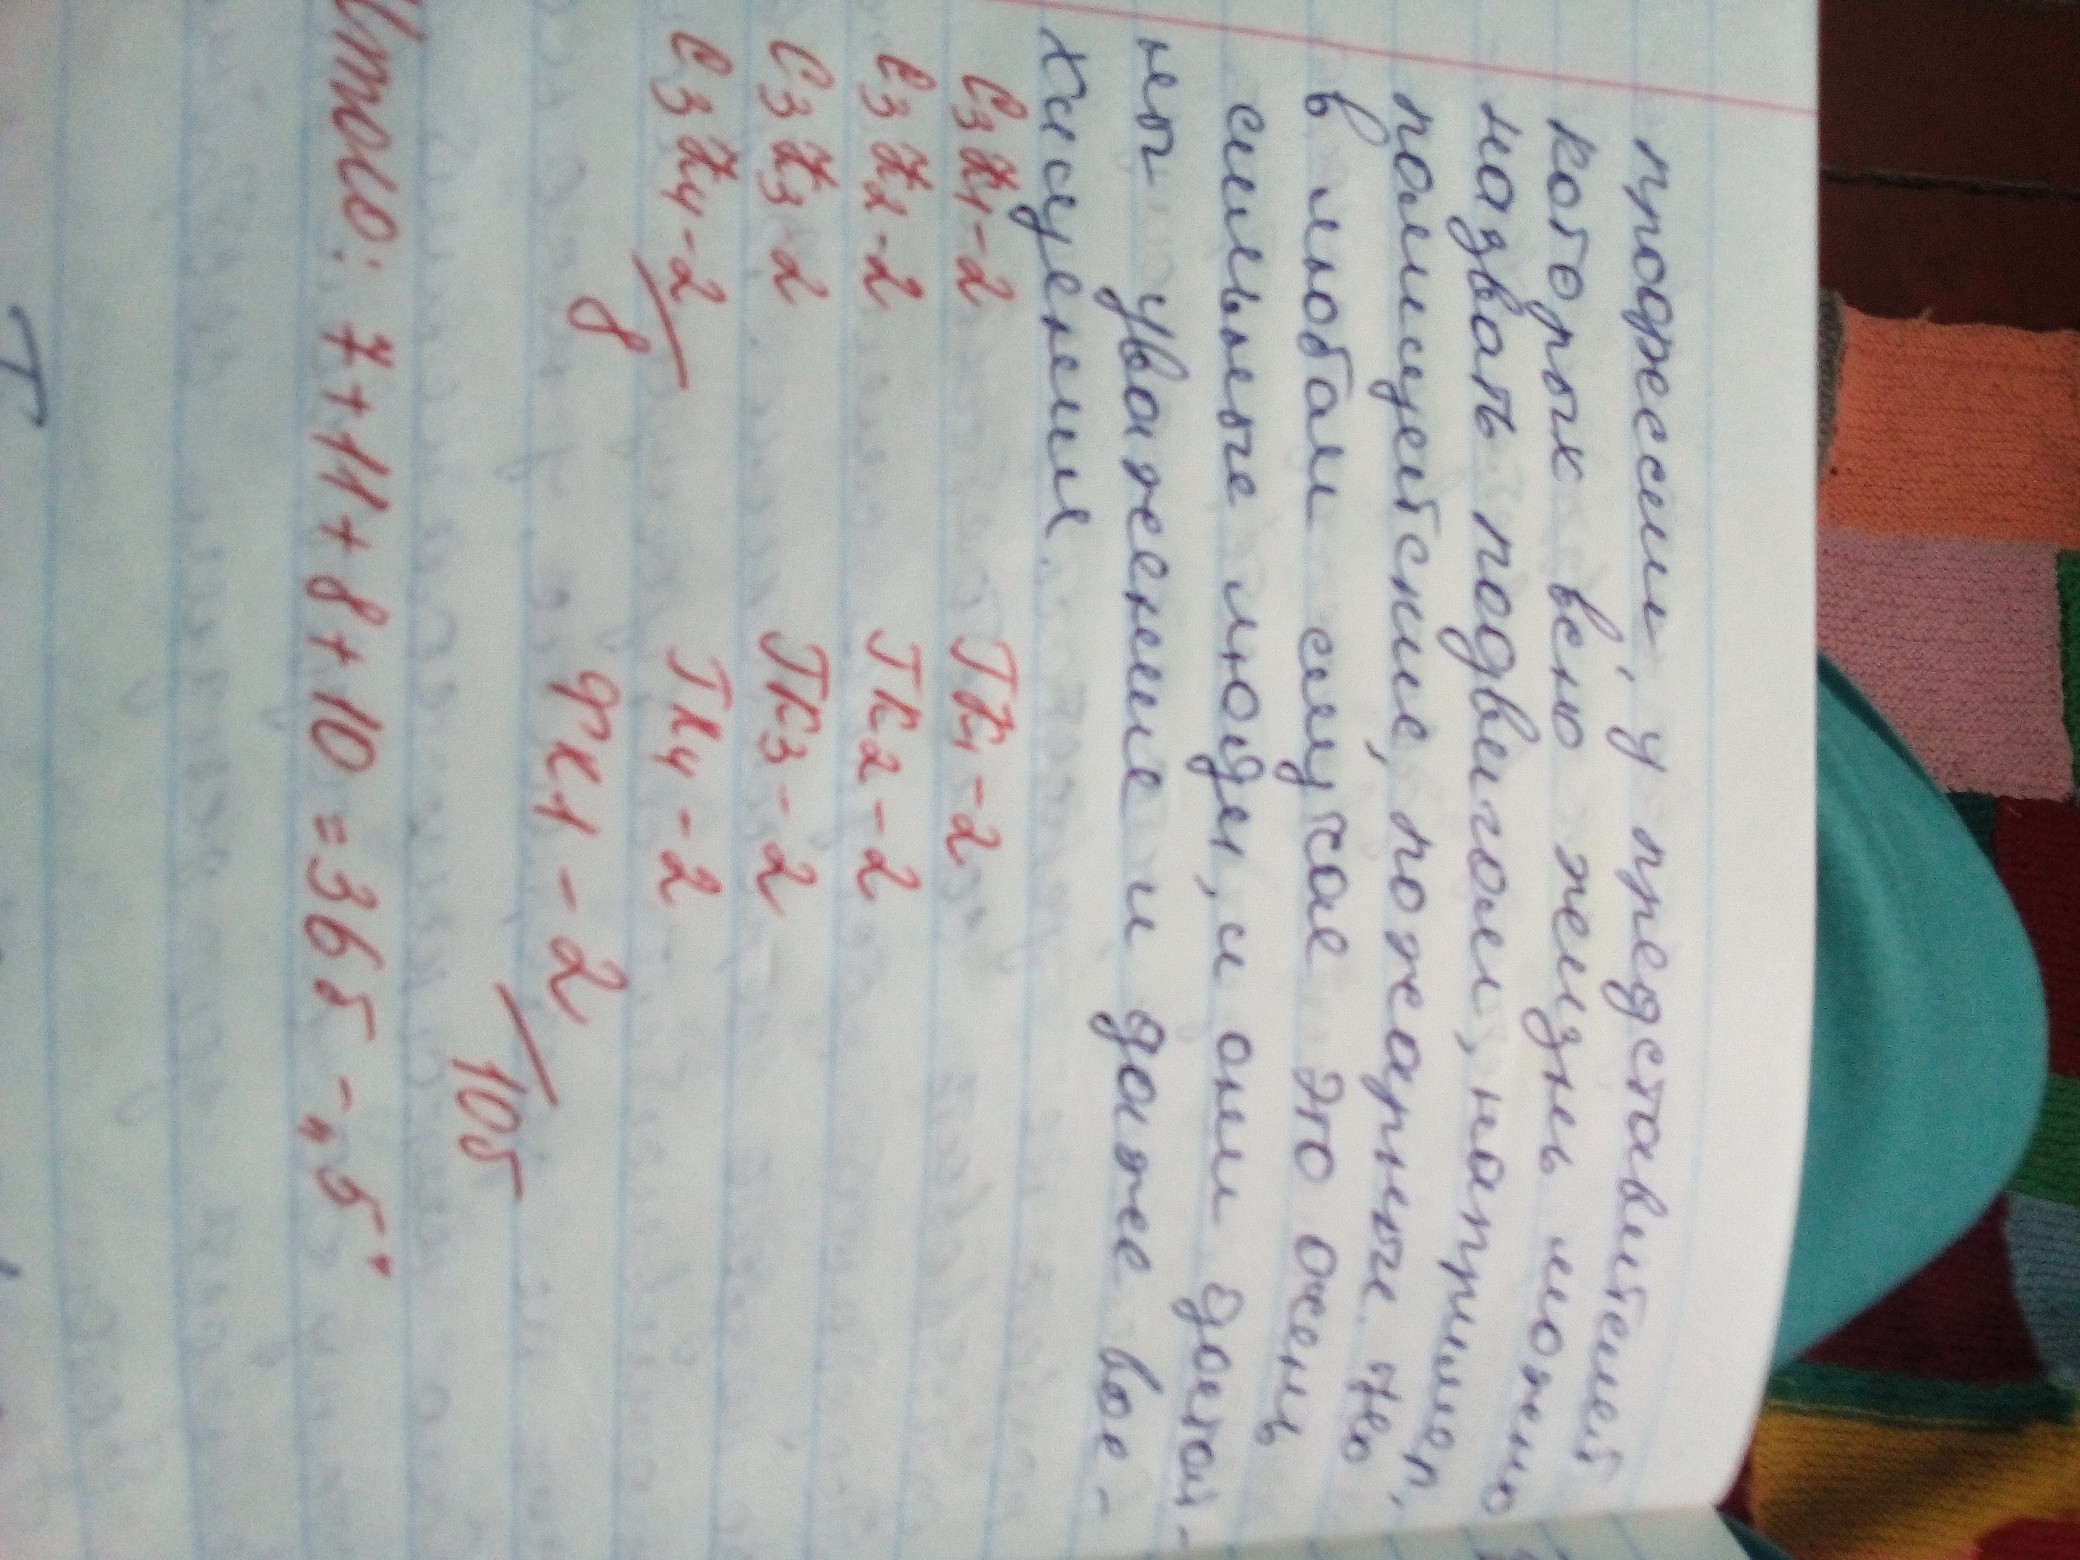 професии, у представителей
которых всю жизнь можно
назвать подвигом, напримеп,
полицейские, пожарные. Но
в любом случае это очень
сильные люди, и они достой-
ны уважения и даже вос-
хищения.
С3К1-2 ГК1-2
С3К2-2 ГК2-2
С3К3-2 ГК3-2
С3К4-2 ГК4-2
8 ФК1-2
10б
Итого: 7+11+8+10=36б - „5"
Т